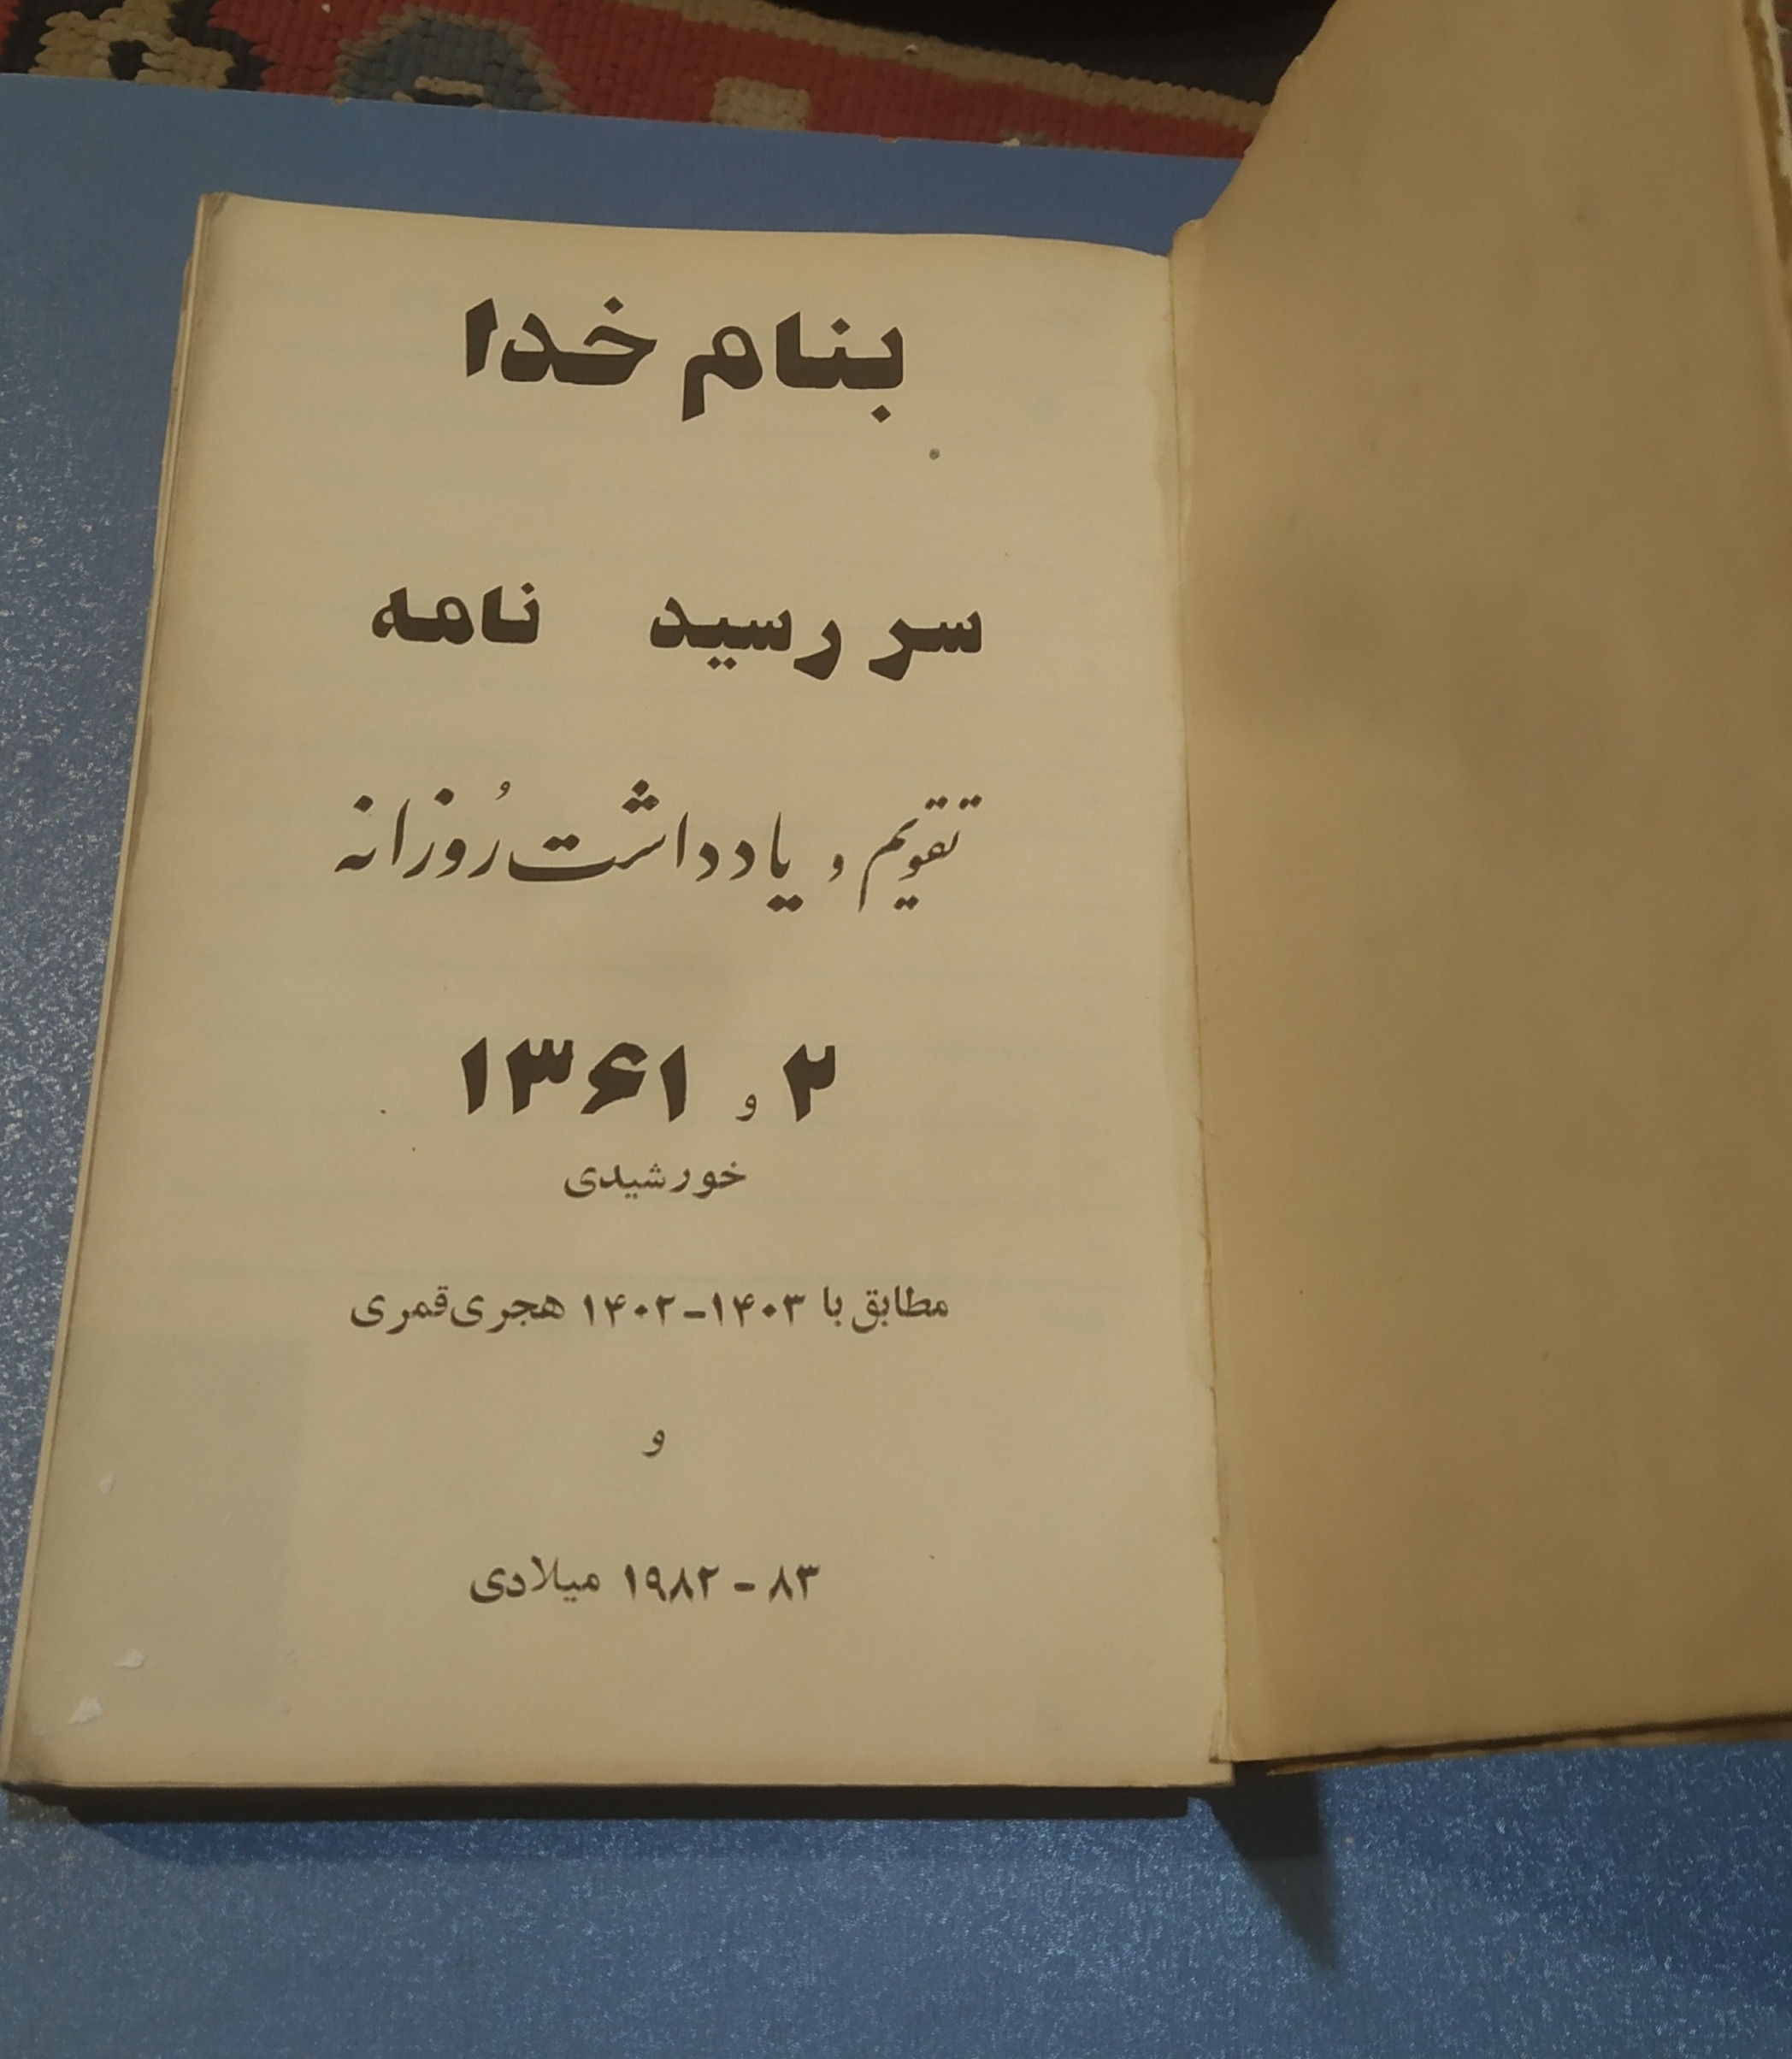 بنام خدا
سر رسید نامه
تقویم و یادداشت رُوزانه
۱۳۶۱ و ۲
خورشیدی
مطابق با ۱۴۰۳-۱۴۰۲ هجری‌قمری
و
۸۳ - ۱۹۸۲ میلادی